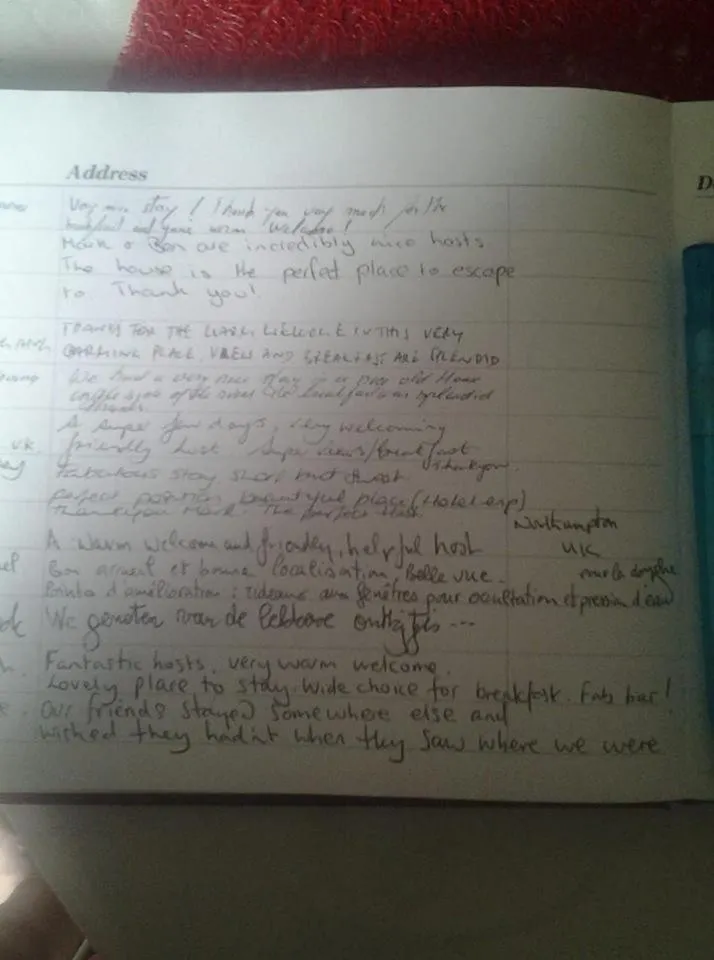 Address
D
Very nice stay! Thank you very much for the
breakfast and your warm welcome!
Mark & Ben are incredibly nice hosts.
The house is the perfect place to escape
to. Thank you!
THANKS FOR THE WARM WELCOME IN THIS VERY
CHARMING PLACE. VIEWS AND BREAKFAST ARE SPLENDID
We had a very nice stay in a nice old House
on the side of the river. breakfast was splendid
A super few days, very welcoming
UK
friendly host super views/breakfast
Thankyou.
Fabulous stay short but sweet
perfect position beautiful place (Hotel esp)
Thankyou Mark. The perfect Host
Northampton
UK
A warm welcome and friendly, helpful host
Bon accueil et bonne localisation, Belle vue.
Points d'amélioration: rideaux aux fenêtres pour occultation et pression d'eau
pour la douche
We genoten van de lekkere ontbijtjes...
Fantastic hosts, very warm welcome.
Lovely place to stay. Wide choice for breakfast. Fab bar!
Our friends stayed somewhere else and
wished they hadnt when they saw where we were